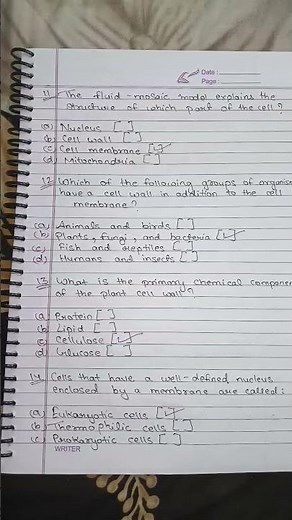 Date :
Page :
11 The fluid-mosaic modal explains the
structure of which part of the cell?
(a) Nucleus [ ]
(b) Cell wall [ ]
(c) Cell membrane [✓]
(d) Mitochondria [ ]
12 Which of the following groups of organism
have a cell wall in addition to the cell
membrane?
(a) Animals and birds [ ]
(b) Plants, fungi, and bacteria [✓]
(c) Fish and reptiles [ ]
(d) Humans and insects [ ]
13 What is the primary chemical componen
of the plant cell wall?
(a) Protein [ ]
(b) Lipid [ ]
(c) Cellulose [✓]
(d) Glucose [ ]
14 Cells that have a well-defined nucleus
enclosed by a membrane are called :
(a) Eukaryotic cells [✓]
(b) Thermophilic cells [ ]
(c) Prokaryotic cells [ ]
WRITER